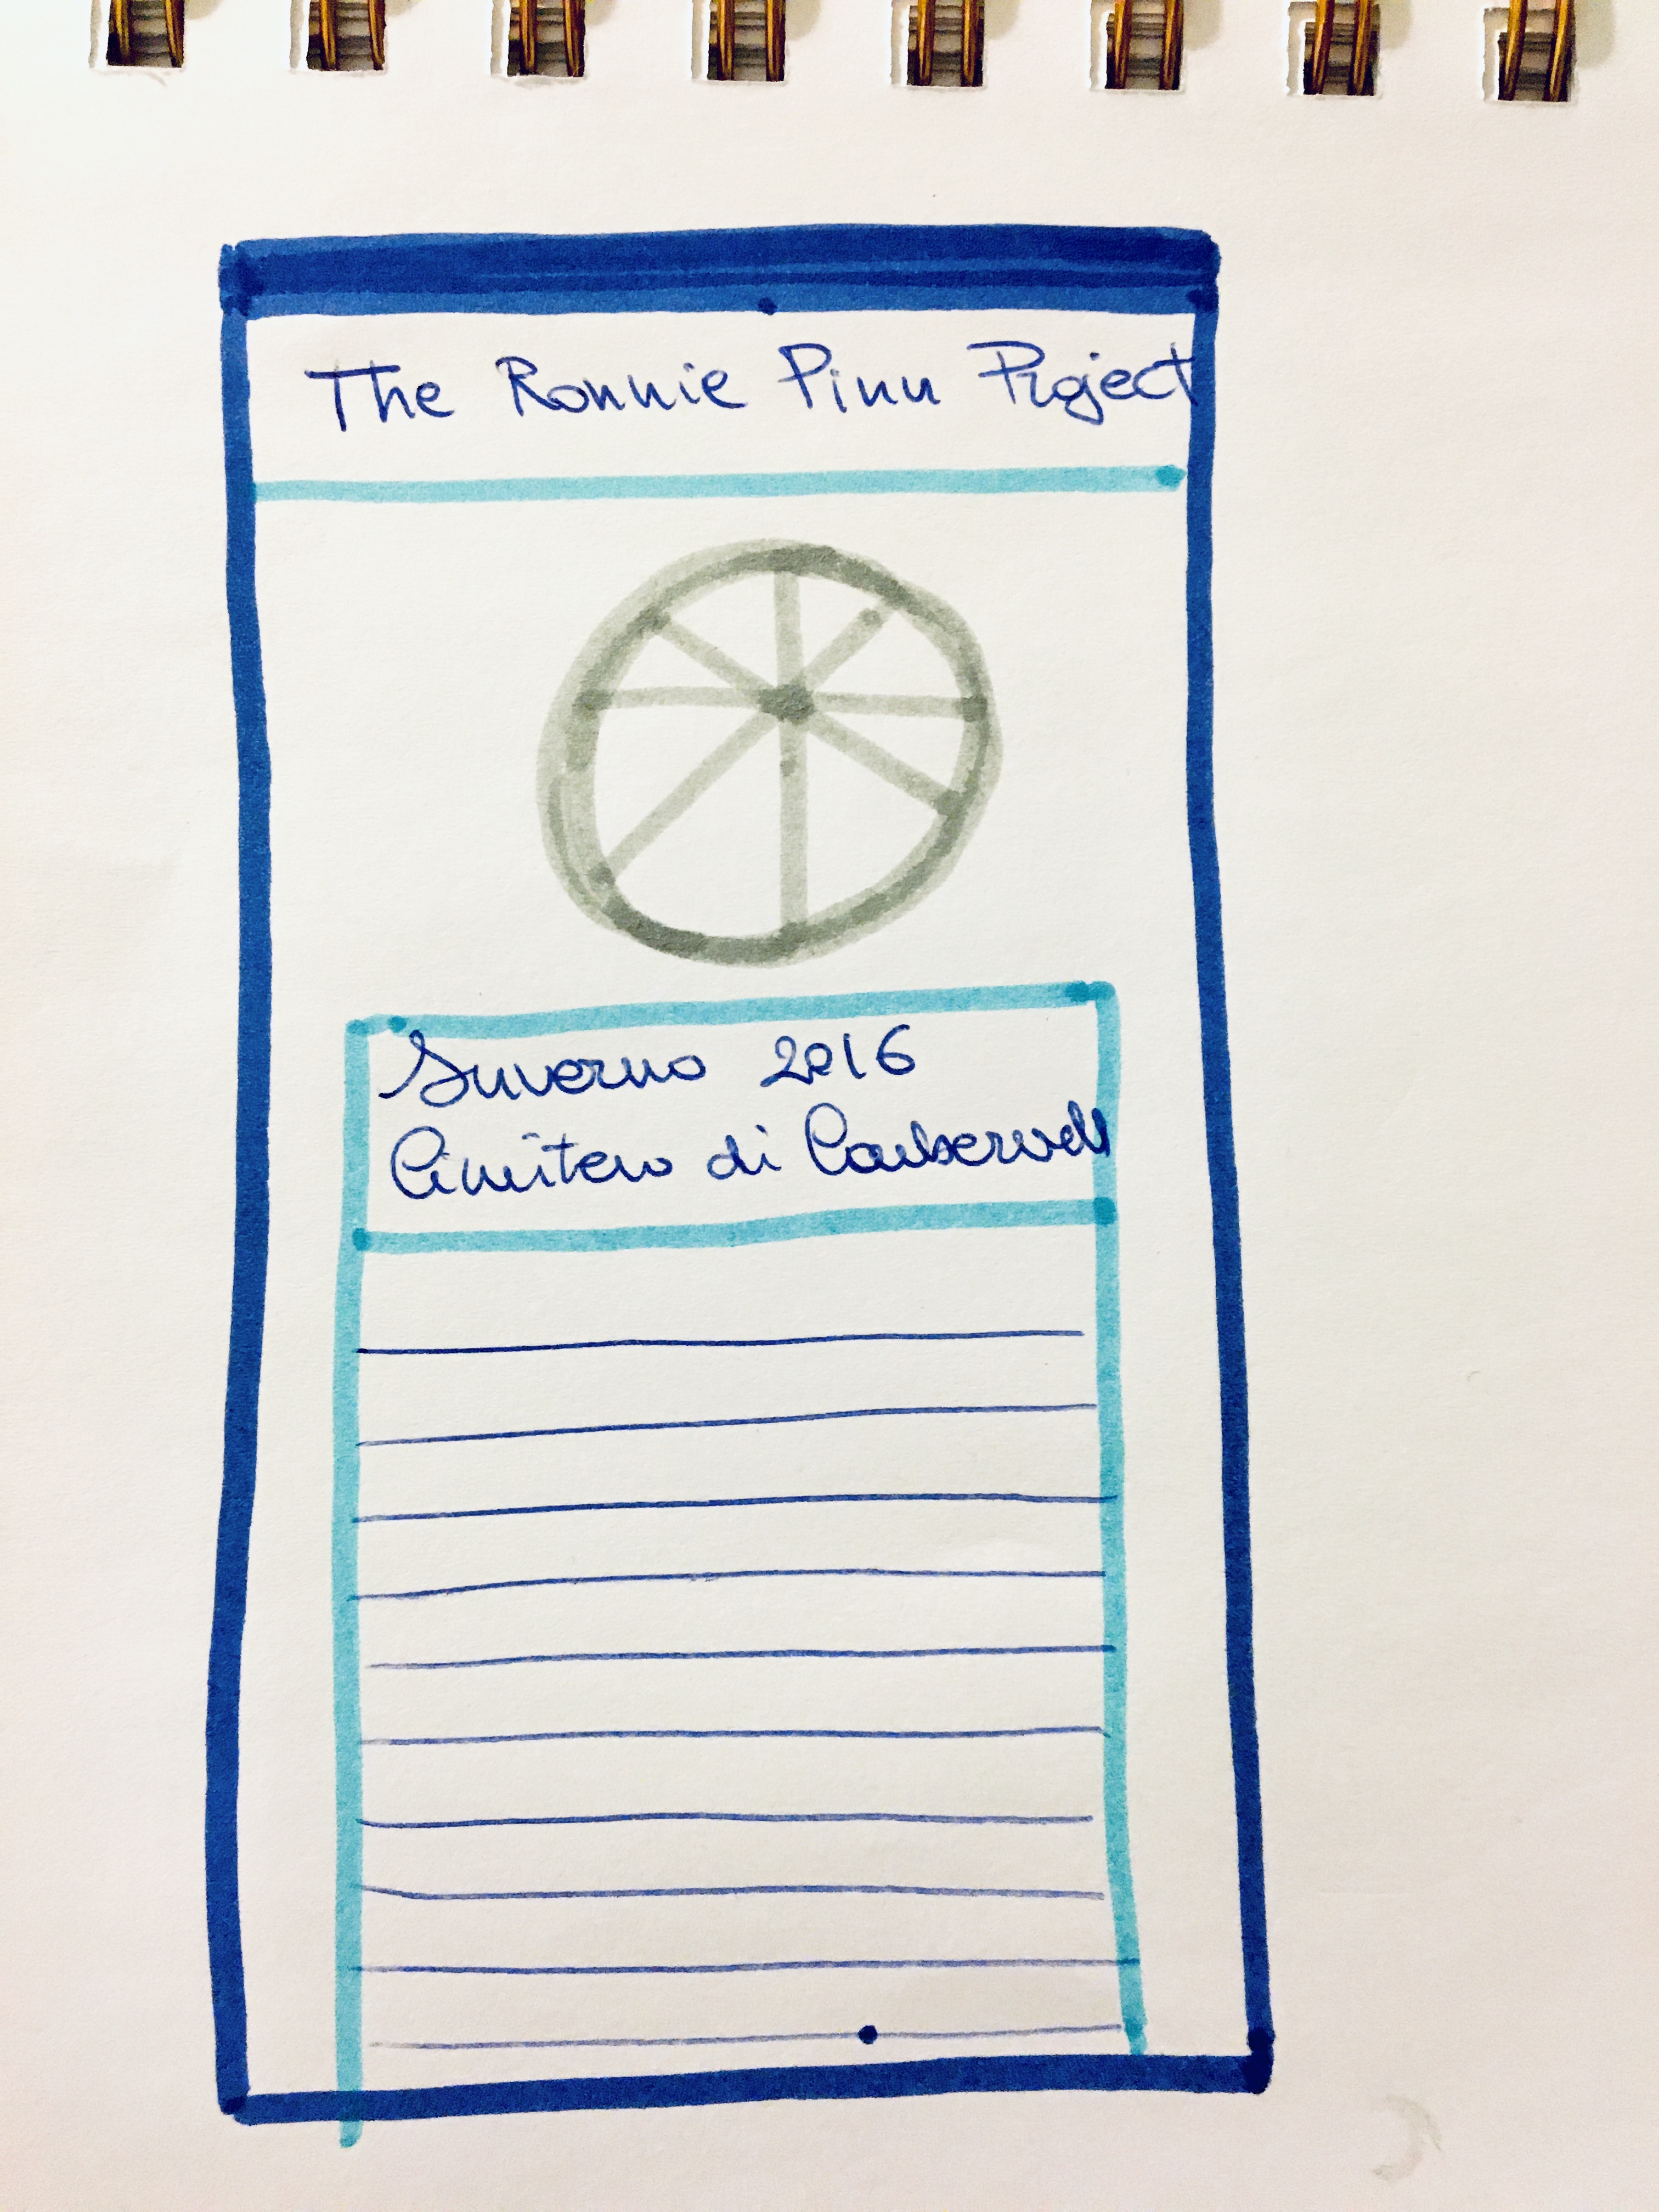 The Ronnie Pinn Project
Inverno 2016
Cimitero di Camberwell